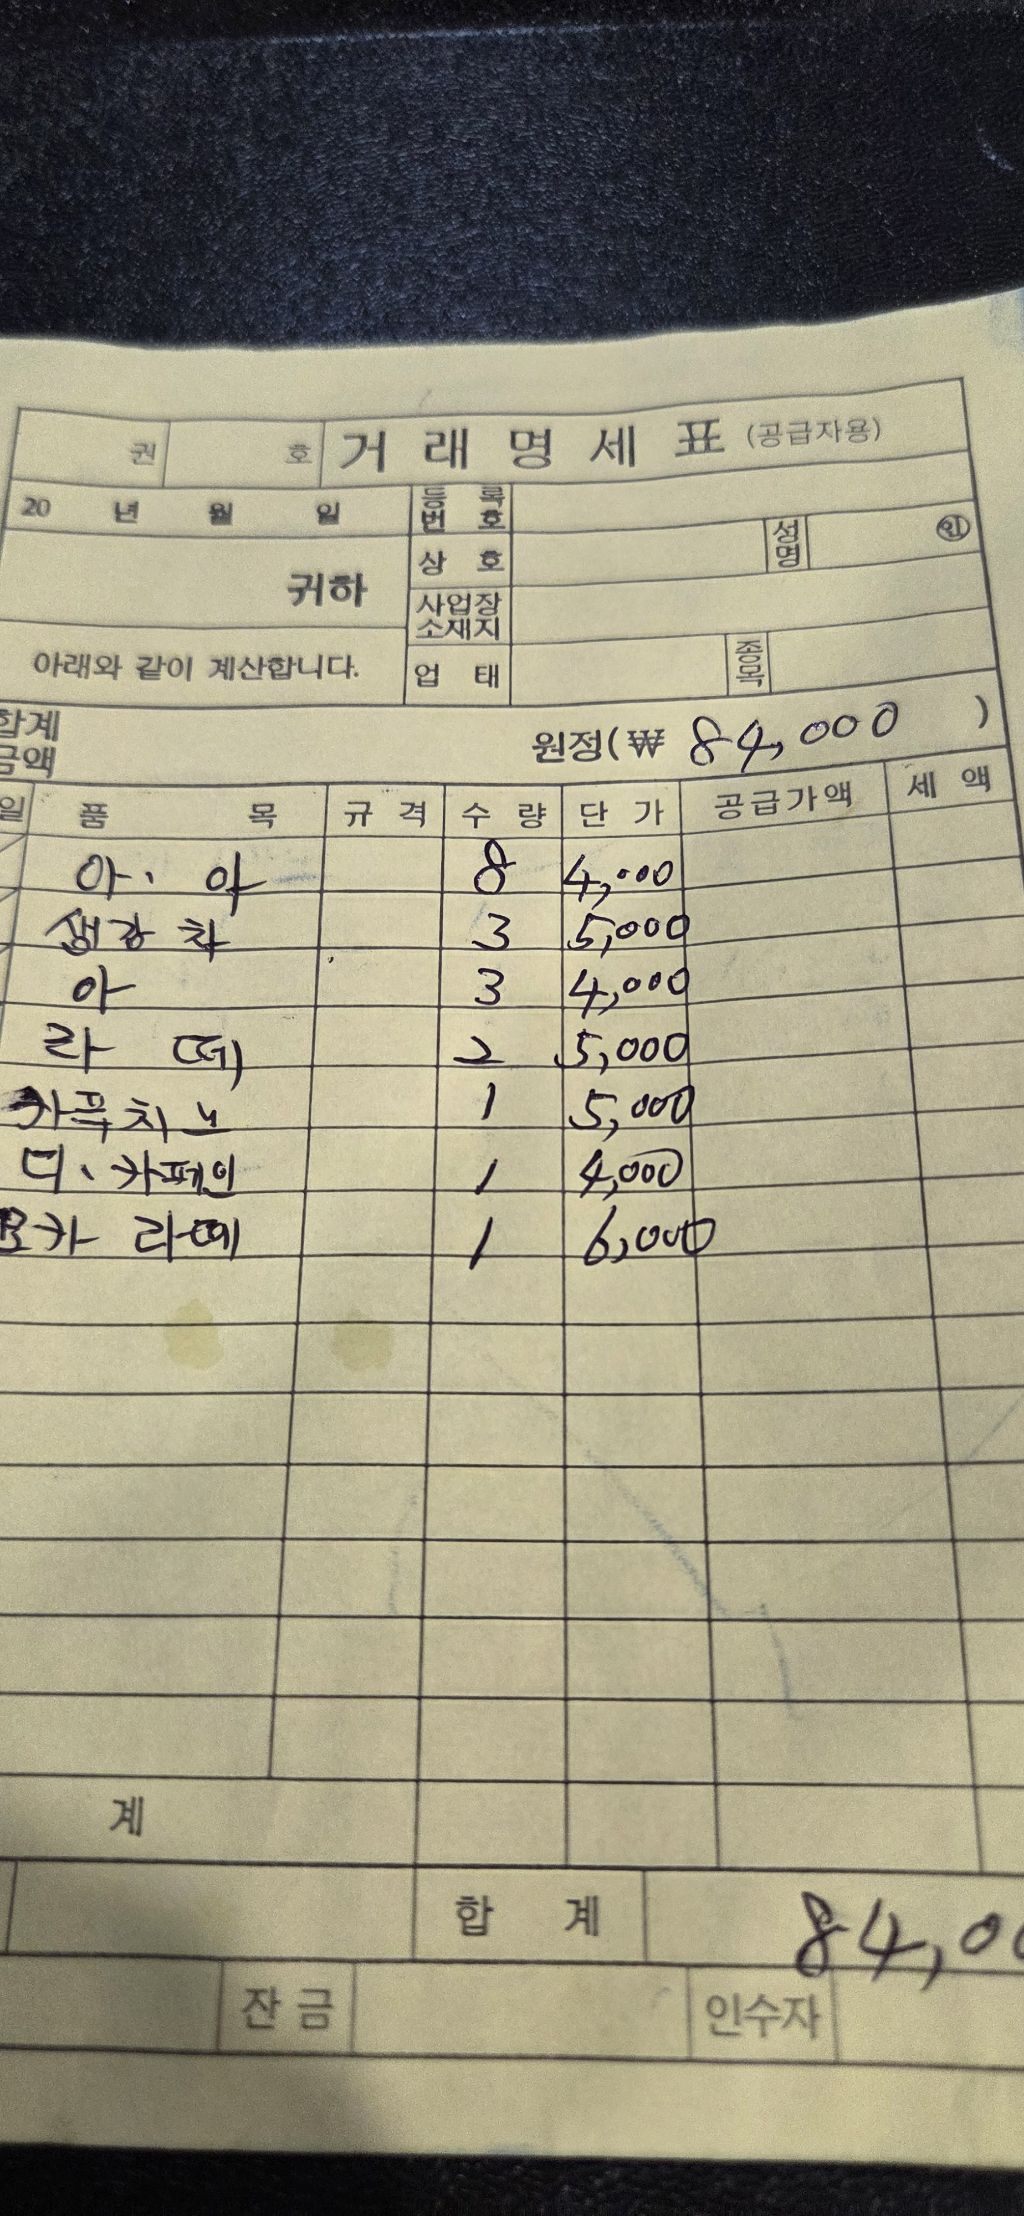 권 호 거 래 명 세 표 (공급자용)
20 년 월 일 등록번호
상 호 성명 인
귀하 사업장소재지
아래와 같이 계산합니다. 업 태 종목
합계금액 원정(₩ 84,000 )
일 품 목 규 격 수 량 단 가 공급가액 세 액
아·아 8 4,000
생강차 3 5,000
아 3 4,000
라떼 2 5,000
카푸치노 1 5,000
디·카페인 1 4,000
모카 라떼 1 6,000
계
합 계 84,00
잔금 인수자